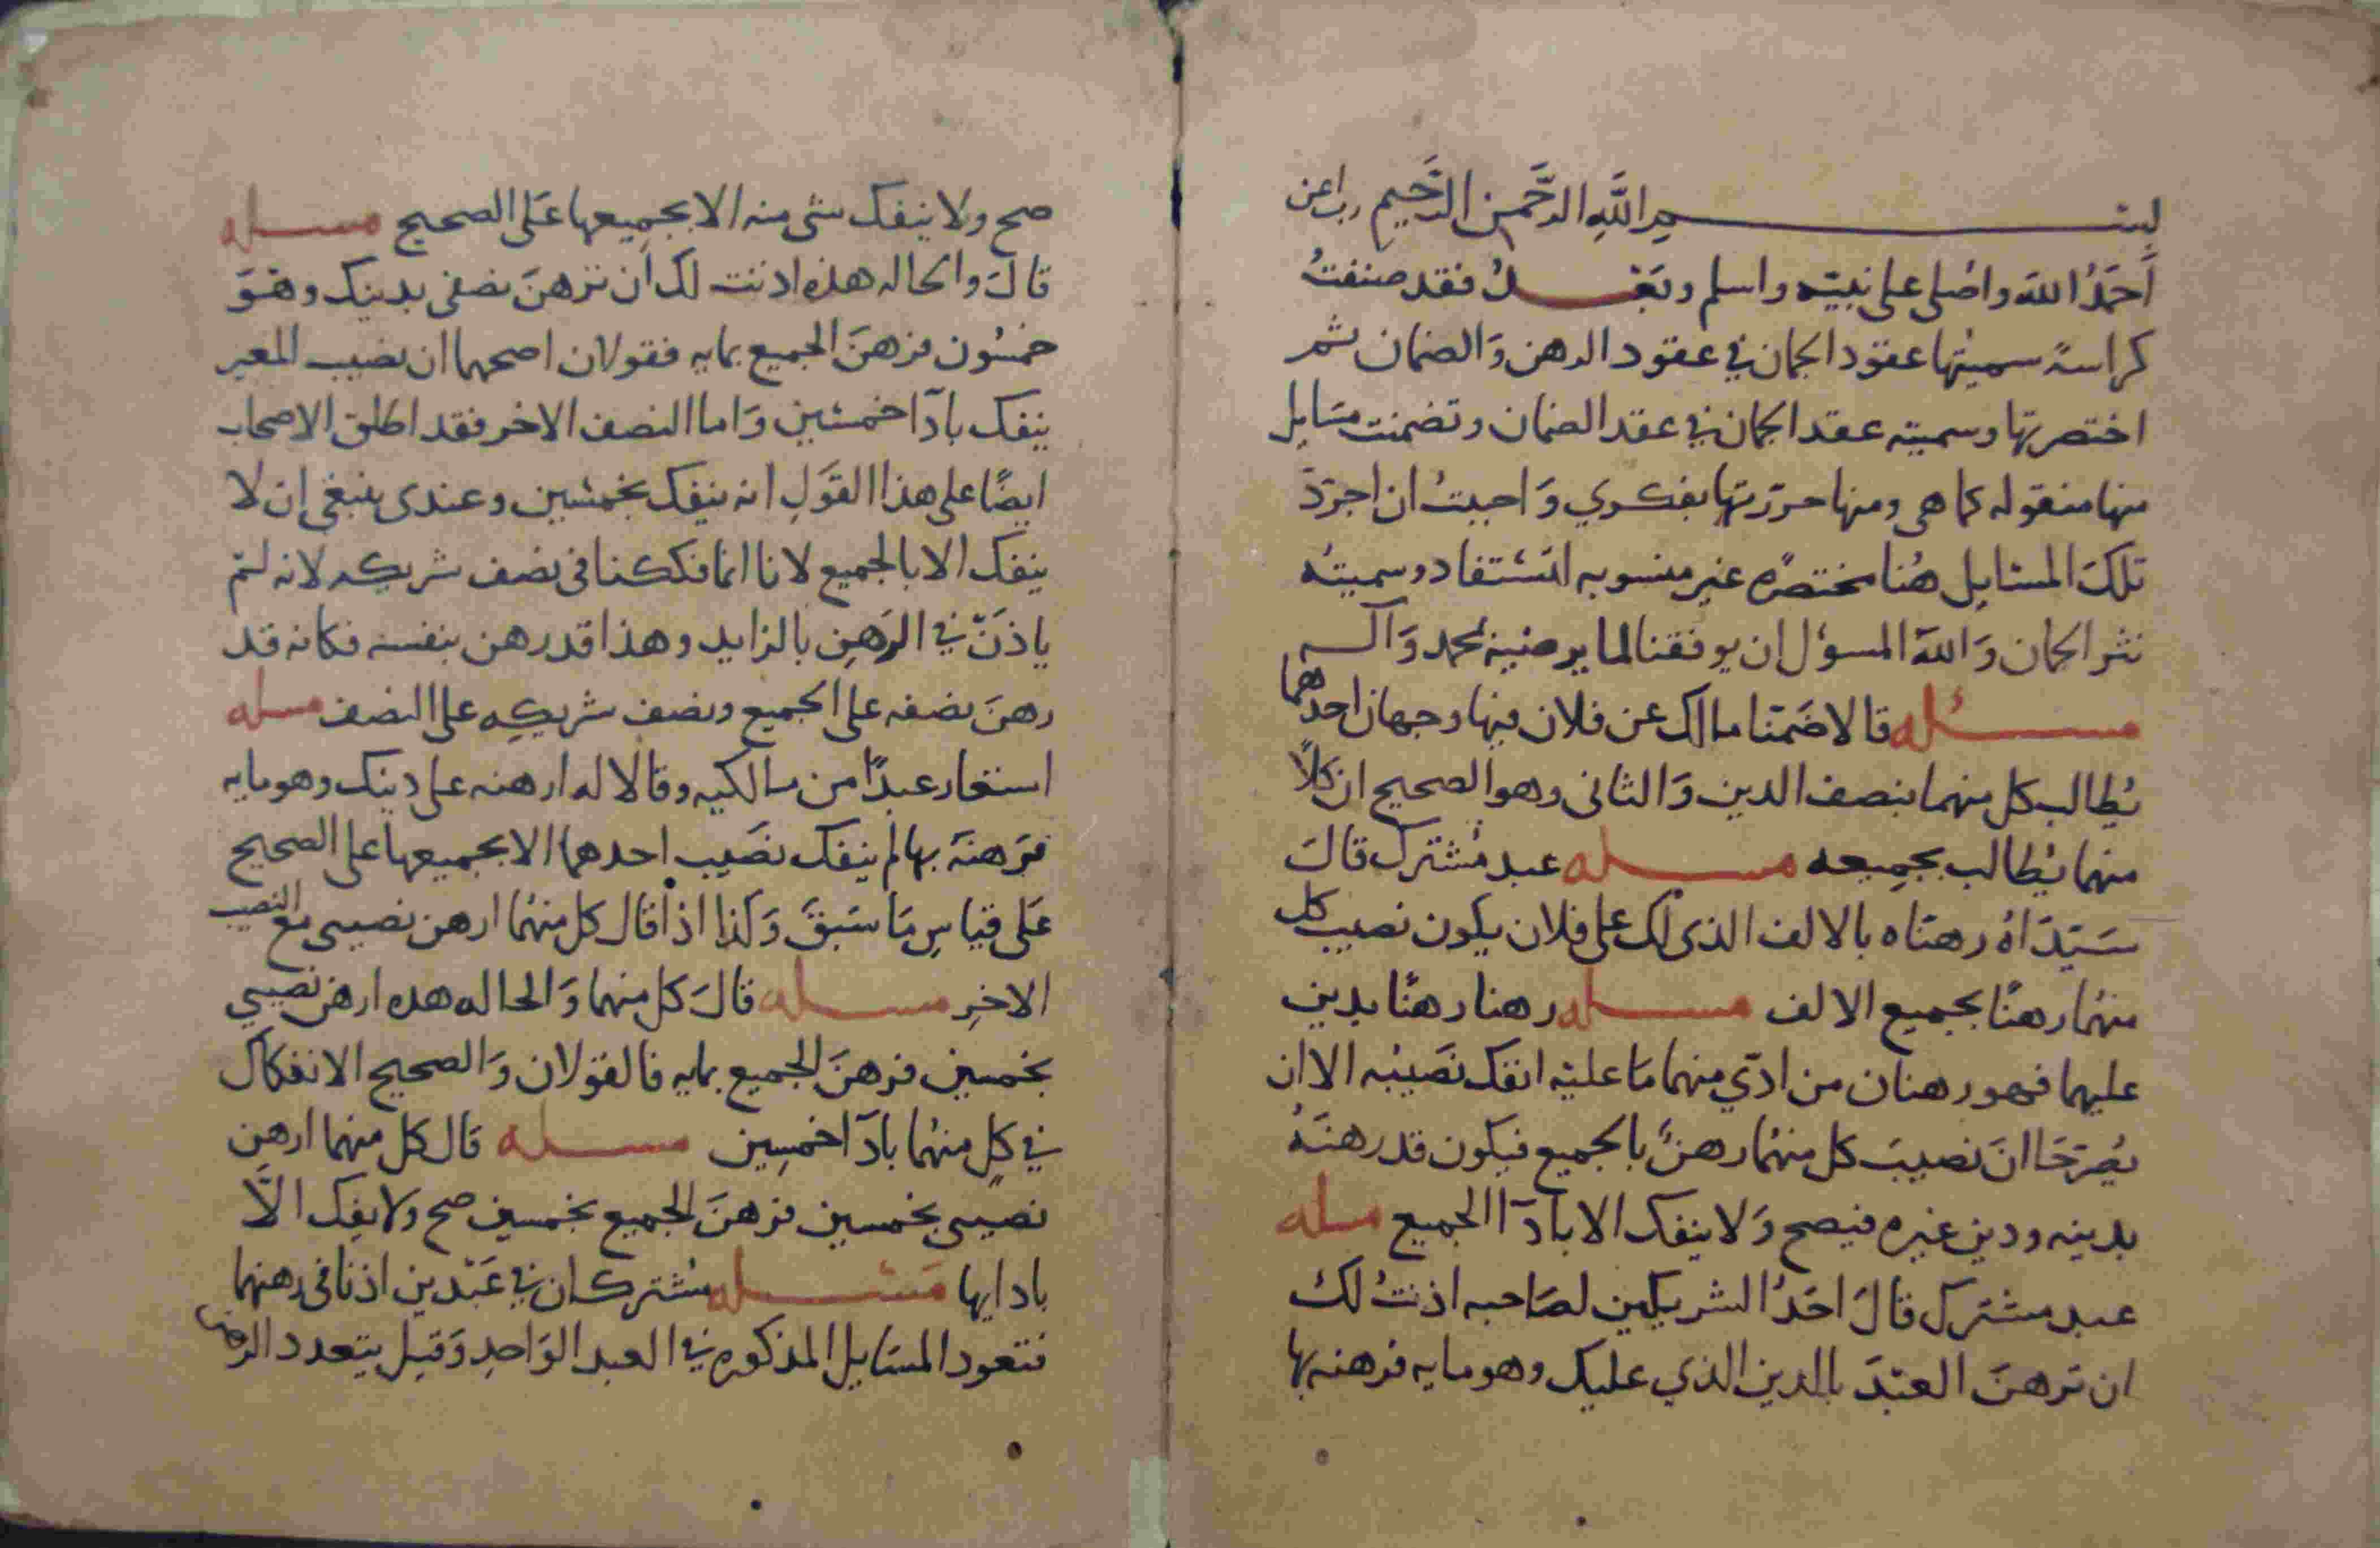 بسم الله الرحمن الرحيم رب اعن
أحمدُ الله واصلى على نبيه واسلم وبعد فقد صنفتُ
كراسة سميتها عقود الجمان في عقود الرهن وَالضمان ثم
اختصرتها وسميته عقد الجمان في عقد الضمان وتضمنت مسَايل
منها منقوله كما هى ومنها حررتها بفكري وَاحببتُ ان اجردَ
تلكَ المسَايل هُنا مختصره غير منسوبه لتستفاد وسميتهُ
نثر الجمان وَاللهَ المسؤل ان يوفقنا لما يرضيه بمحمد وَآله
مسئله قالا ضَمنّا مالك عن فلان فيها وجهان احدهما
يُطالب كل منهما بنصف الدين وَالثانى وهو الصحيح ان كلاً
منهما يُطالب بجميعه مسله عبد مُشترك قالَ
سَيّدَاهُ رهنّاه بالالف الذى لك على فلان يكون نصيب كل
منهُما رهنًا بجميع الالف مسله رهنا رهنًا بدين
عليهما فهو رهنان من ادّي منهما مَا عليه انفك نصَيبُه الا ان
يُصَرّحَا انَ نصيبَ كل منهُما رهنٌ بالجميع فيكون قد رهنَهُ
بدينه ودين غيره فيصح وَلا ينفك الا بادَآ الجميع مسله
عبد مشترك قالَ احَدُ الشريكين لصَاحبه اذنتُ لكَ
ان تَرهنَ العبْدَ بالدين الذي عليك وهو مايه فرهنه بها
صح ولا ينفك شى منه الا بجميعها عَلى الصحيح مسله
قالَ والحاله هذه اذنت لك ان ترهنَ نصفى بدينك وهوَ
خمسُون فرهنَ الجميع بمايه فقولان اصحهما ان نصيب المعير
ينفك بادَآ خمسين وَاما النصف الاخر فقد اطلق الاصحاب
ايضًا على هذا القَولِ انه ينفك بخمسين وعندى ينبغى ان لا
ينفك الا بالجميع لانا انما فككنا فى نصف شريكه لانه لم
ياذنَ في الرَهنِ بالزايد وهذا قد رهن بنفسه فكانه قد
رهنَ نصفه على الجميع ونصف شريكِه على النصف مسله
استعار عبدًا من مالكيه وقالا له ارهنه على دينك وهو مايه
فرَهنهَ بها لم ينفك نصَيب احدهما الا بجميعها على الصحيح
عَلى قياسِ مَا سَبقَ وَكذا اذا قال كل منهُما ارهن نصيبى مع النصيب
الاخرِ مسله قالَ كل منهما وَالحاله هذه ارهن نصيبي
بخمسين فرهنَ الجميع بمايه فالقولان وَالصحيح الانفكاك
في كلٍ منهُما بادَآ خمسِين مسله قال كل منهما ارهن
نصيبى بخمسين فرهنَ الجميع بخمسين صح ولا يفك الّا
بادايها مسئله مُشتركان في عَبْدين اذنا فى رهنهما
فتعود المسَايل المذكوره في العبد الوَاحدِ وَقيل يتعدد الرهن